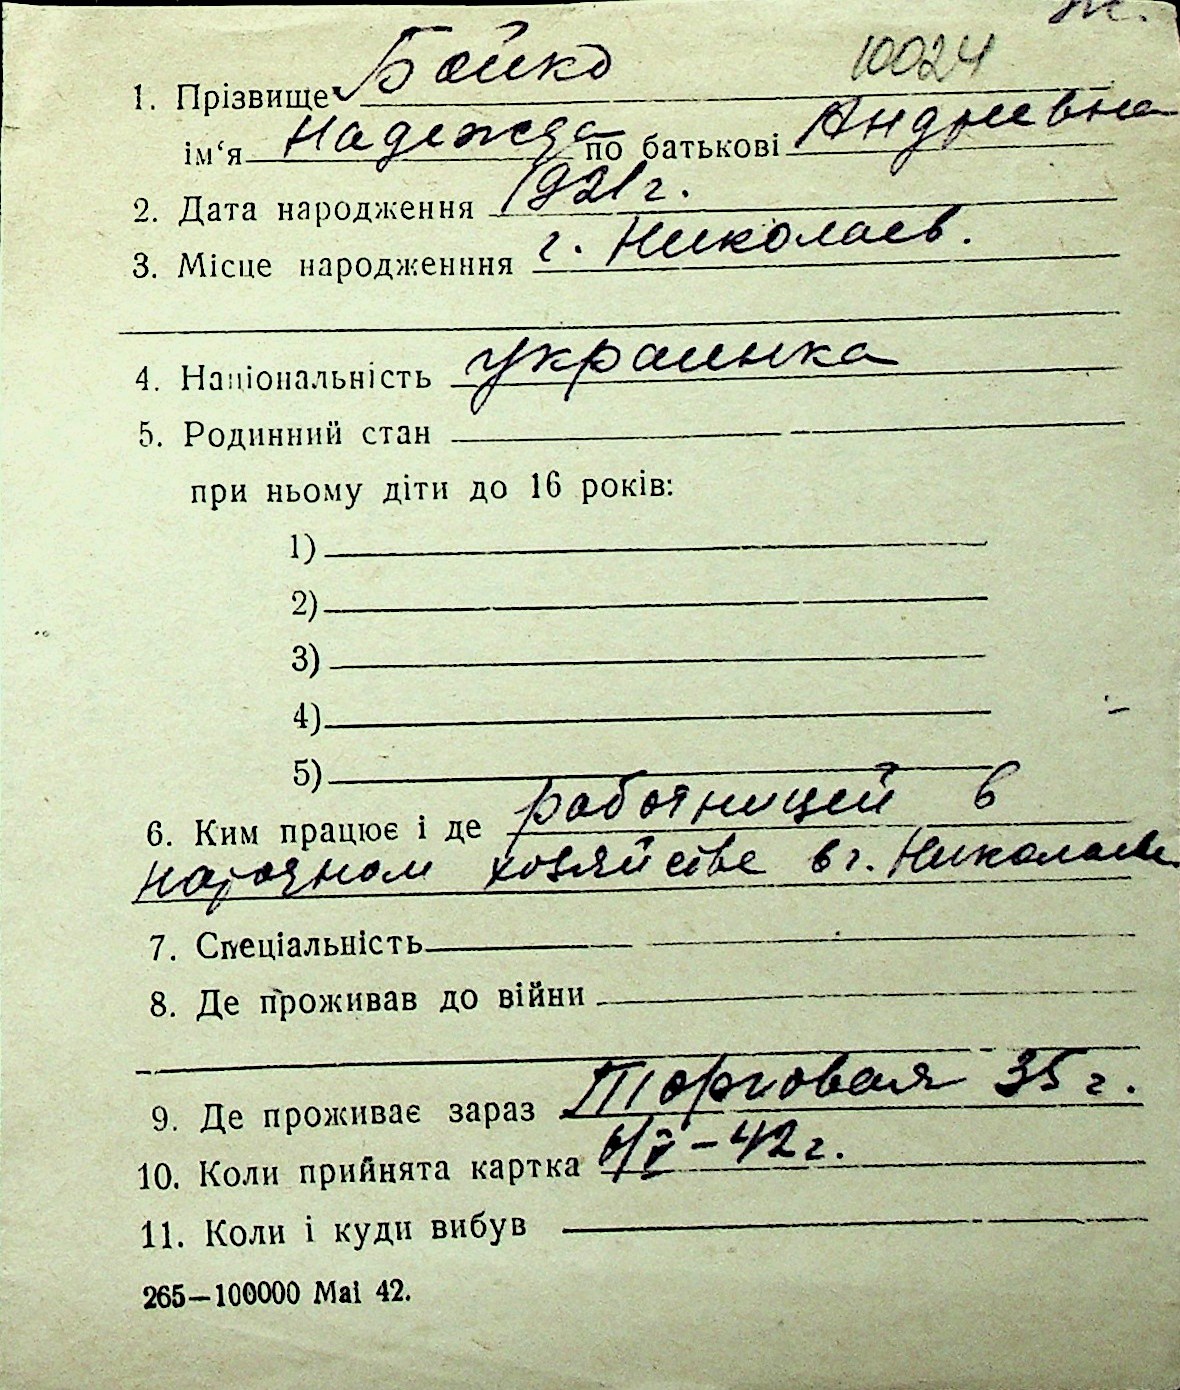 ж.
10024
1. Прізвище Бойко
ім‘я Надежда по батькові Андреевна
2. Дата народження 1921 г.
3. Місце народженння г. Николаев.
4. Національність украинка
5. Родинний стан
при ньому діти до 16 років:
1)
2)
3)
4)
5)
6. Ким працює і де работницей в
народном хозяйстве в г. Николаеве
7. Спеціальність
8. Де проживав до війни
9. Де проживає зараз Торговая 35 г.
10. Коли прийнята картка –42 г.
11. Коли і куди вибув
265—100000 Mai 42.